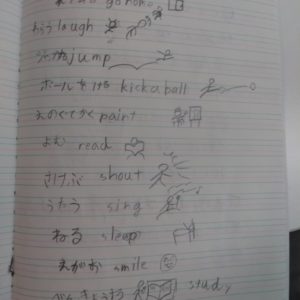 go home
わらう laugh
jump
ボールをける kick a ball
えのぐでかく paint
よむ read
さけぶ shout
うたう sing
ねる sleep
えがお smile
べんきょうする study